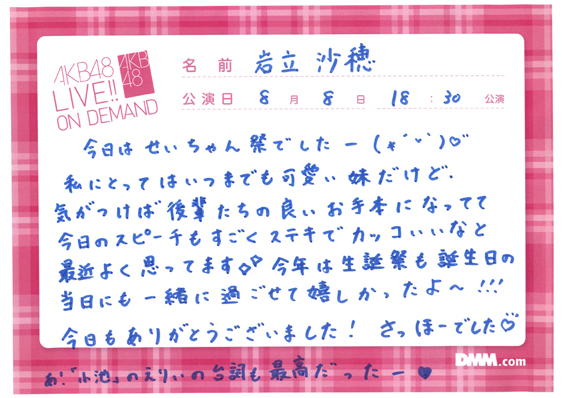 AKB48
LIVE!!
ON DEMAND
AKB
48
名前 岩立 沙穂
公演日 8月8日 18:30 公演
今日は せいちゃん祭でしたー(*´ᵕ`)♡
私にとってはいつまでも可愛い妹だけど、
気がつけば後輩たちの良いお手本になってて
今日のスピーチもすごくステキでカッコいいなと
最近よく思ってます✧✧ 今年は生誕祭も誕生日の
当日にも一緒に過ごせて嬉しかったよ〜!!!
今日もありがとうございました! さっほーでした♡
DMM.com
あ!「小池」のえりぃの台詞も最高だったー♥